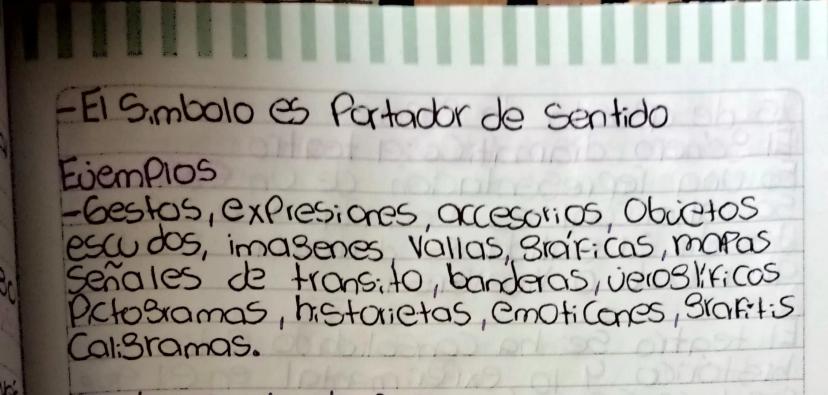 -El Simbolo es Portador de Sentido
Ejemplos
-Gestos, expresiones, accesorios, Objetos
escudos, imagenes, vallas, gráficas, mapas
Señales de transito, banderas, jeroglificos
Pictogramas, historietas, emoticones, grafitis
Caligramas.